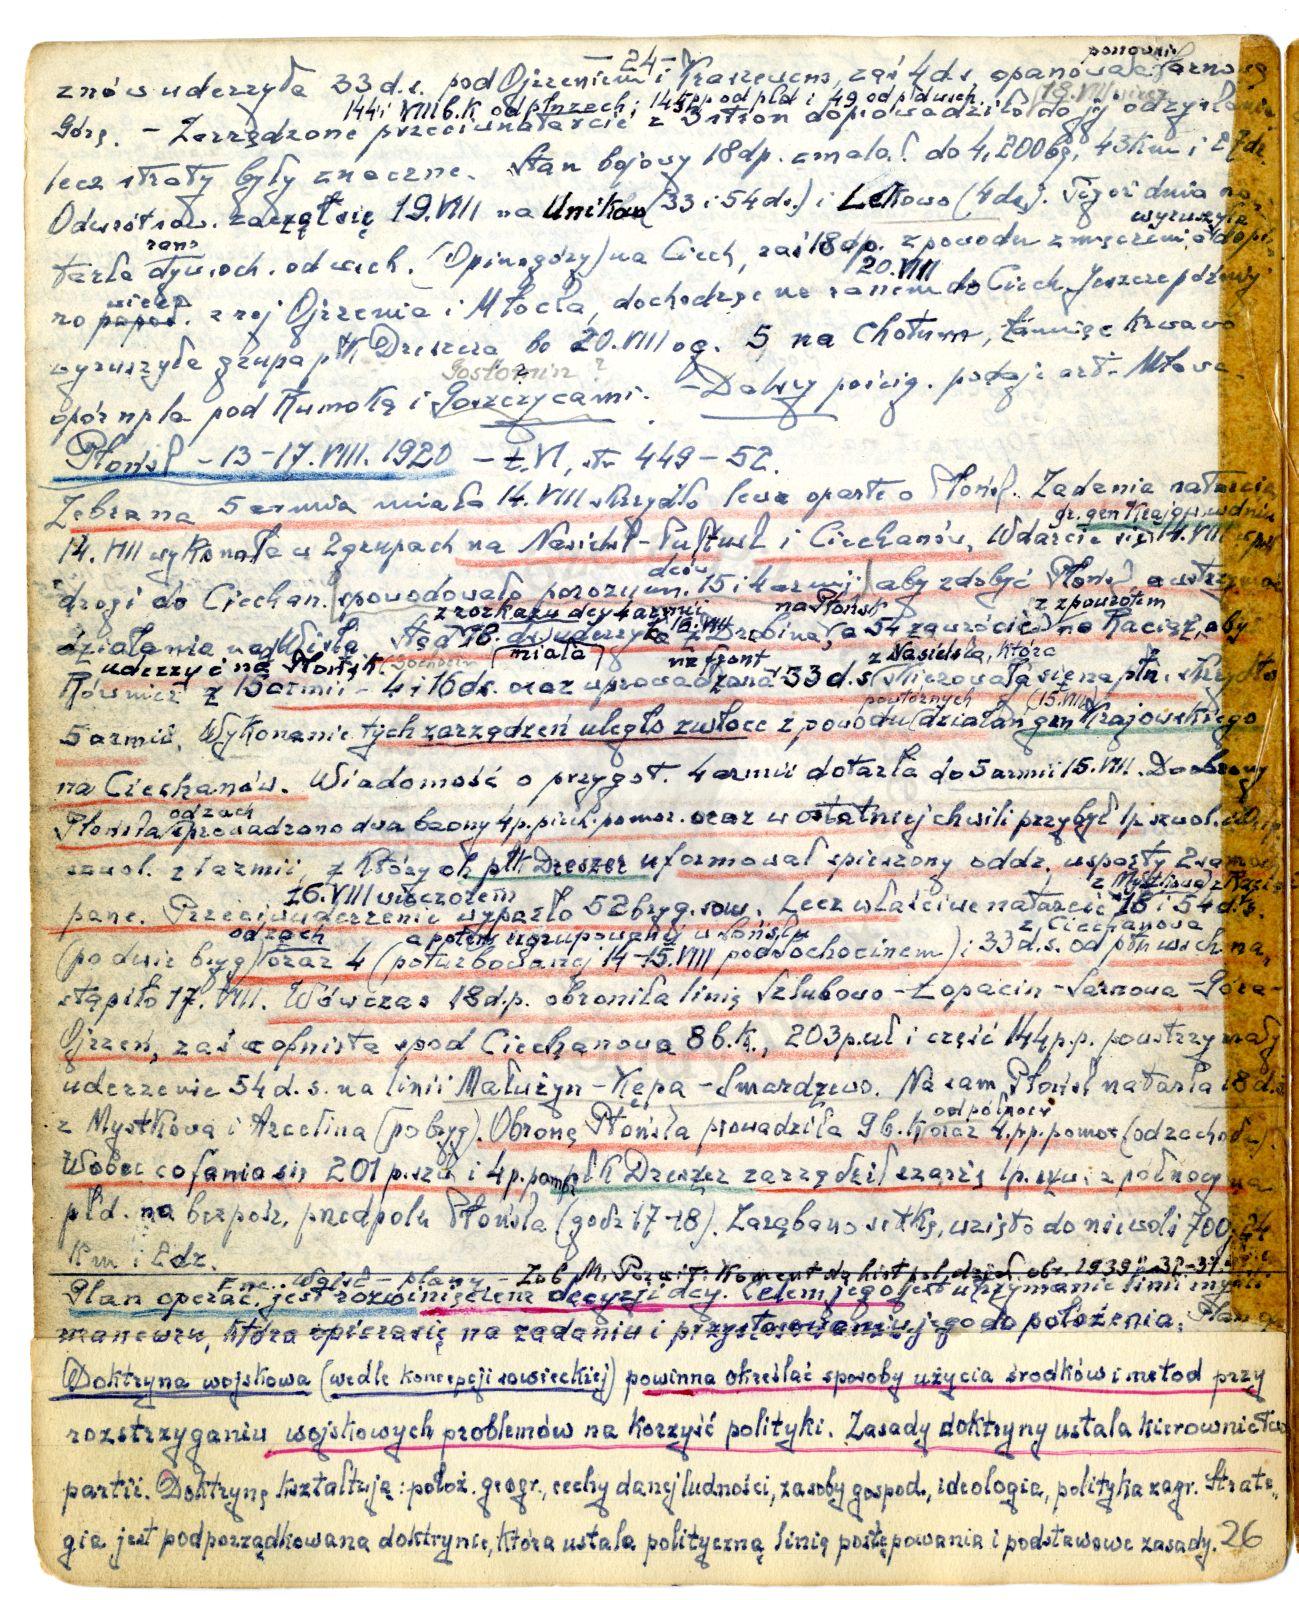 - 24 -
ponownie
znów uderzyła 33 d.s. pod Ojrzeniem i Kraszewem, zaś 4 d.s. opanowała Sarnową
18.VIII wiecz.
144 i VIII b.k. od płn zach; 145 pp od płd i 49 od płd wsch.
Górę. - Zarządzone przeciwnatarcie z 3 stron doprowadziło do jej odzyskania
lecz straty były znaczne. Stan bojowy 18 dp. zmalał do 4,200 bg, 43 km i 27 dz.
Odwrót sow. zaczął się 19.VIII na Unikow (33 i 54 d.s.) i Lekowo (4 ds). Tegoż dnia na-
rano wyruszyła
tarła dyw. och. od wsch. (Opinogóry) na Ciech, zaś 18 dp. z powodu zmęczenia, dopie-
wiecz. 20.VIII
ro popoł. z rej Ojrzenia i Młocka, dochodząc na ranem do Ciech. Jeszcze później
wyruszyła grupa płk Dreszera bo 20.VIII o g. 5 na Chotum, łamiąc krwawo
Gostomin ?
opór npla pod Kumoką i Goszczycami. - Dalszy pościg. podaje art. Mława.
Płońsk - 13-17.VIII.1920 - t. VI, str 449-52.
Zebrana 5 armia miała 14.VIII skrzydło lewe oparte o Płońsk. Zadania natarcia
gr. gen Krajows. w dniu
14.VIII wykonała w 2 grupach na Nasielsk-Pułtusk i Ciechanów. Wdarcie się 14.VIII
dców
drogi do Ciechan. spowodowało porozum. 15 i 4 armij, aby zdobyć Płońsk a wstrzymać
z rozkazu dcy 4 armii na Płońsk z zpowrotem
działania nad Wisłą. Stąd 18. ds uderzyła 16.VIII z Drobina, a 54 zawrócić na Raciąż, aby
uderzyć na Płońsk (Sochocin miała na front z Nasielska, która
Również z 15 armii - 4 i 16 ds. oraz wprowadzona 33 d.s. skierowała się na płn. skrzydło
powtórnych (15.VIII)
5 armii. Wykonanie tych zarządzeń uległo zwłoce z powodu działań gen Krajowskiego
na Ciechanów. Wiadomość o przygot. 4 armii dotarła do 5 armii 15.VIII. Do obrony
od zach
Płońska sprowadzono dwa baony 4 p. piech. pomor. oraz w ostatniej chwili przybył 1 p. szwol.
szwol. z 1 armii, z których płk Dreszer uformował spieszony oddz. wsparty 2 samoch
16.VIII wieczorem z Mystkowa
panc. Przeciwuderzenie wyparło 52 bryg. sow. Lecz właściwe natarcie 18 i 54 ds.
od zach a potem ugrupowany w Płońsku z Ciechanowa
(po dwie bryg) oraz 4 (poturbowanej 14-15.VIII pod Sochocinem) i 33 d.s. od płn wsch na-
stąpiło 17.VIII. Wówczas 18 d.p. obroniła linię Szlubowo - Łopacin - Sarnowa - Góra -
Ojrzeń, zaś cofnięta spod Ciechanowa 8 b.k., 203 p.uł i część 144 p.p. powstrzymały
uderzenie 54 d.s. na linii Malużyn - Kępa - Smardzewo. Na sam Płońsk natarła 18 d.s.
od północy
z Mystkowa i Arcelina (po bryg). Obronę Płońska prowadziła 9 b.k. oraz 4. pp. pomor (od zachodu).
Wobec cofania się 201 p.szw. i 4 p.p. pomor płk Dreszer zarządził szarżę 1 p. szw. z północy na
płd. na bezpośr. przedpolu Płońska (godz 17-18). Zarąbano setkę, wzięto do niewoli 700, 24
km i 2 dz.
Enc. Wojsk - plany - Zob. M. Porwit: Koment. do hist. pol. dział. obr. 1939
Plan operac. jest rozwinięciem decyzji dcy. Celem jego jest utrzymanie linii myśli
manewru, która opiera się na zadaniu i przystosowaniu jego do położenia.
Doktryna wojskowa (wedle koncepcji sowieckiej) powinna określać sposoby użycia środków i metod przy
rozstrzyganiu wojskowych problemów na korzyść polityki. Zasady doktryny ustala kierownictwo
partii. Doktrynę kształtują: położ. geogr., cechy danej ludności, zasoby gospod., ideologia, polityka zagr. Strate-
gia jest podporządkowana doktrynie, która ustala polityczną linię postępowania i podstawowe zasady. 26